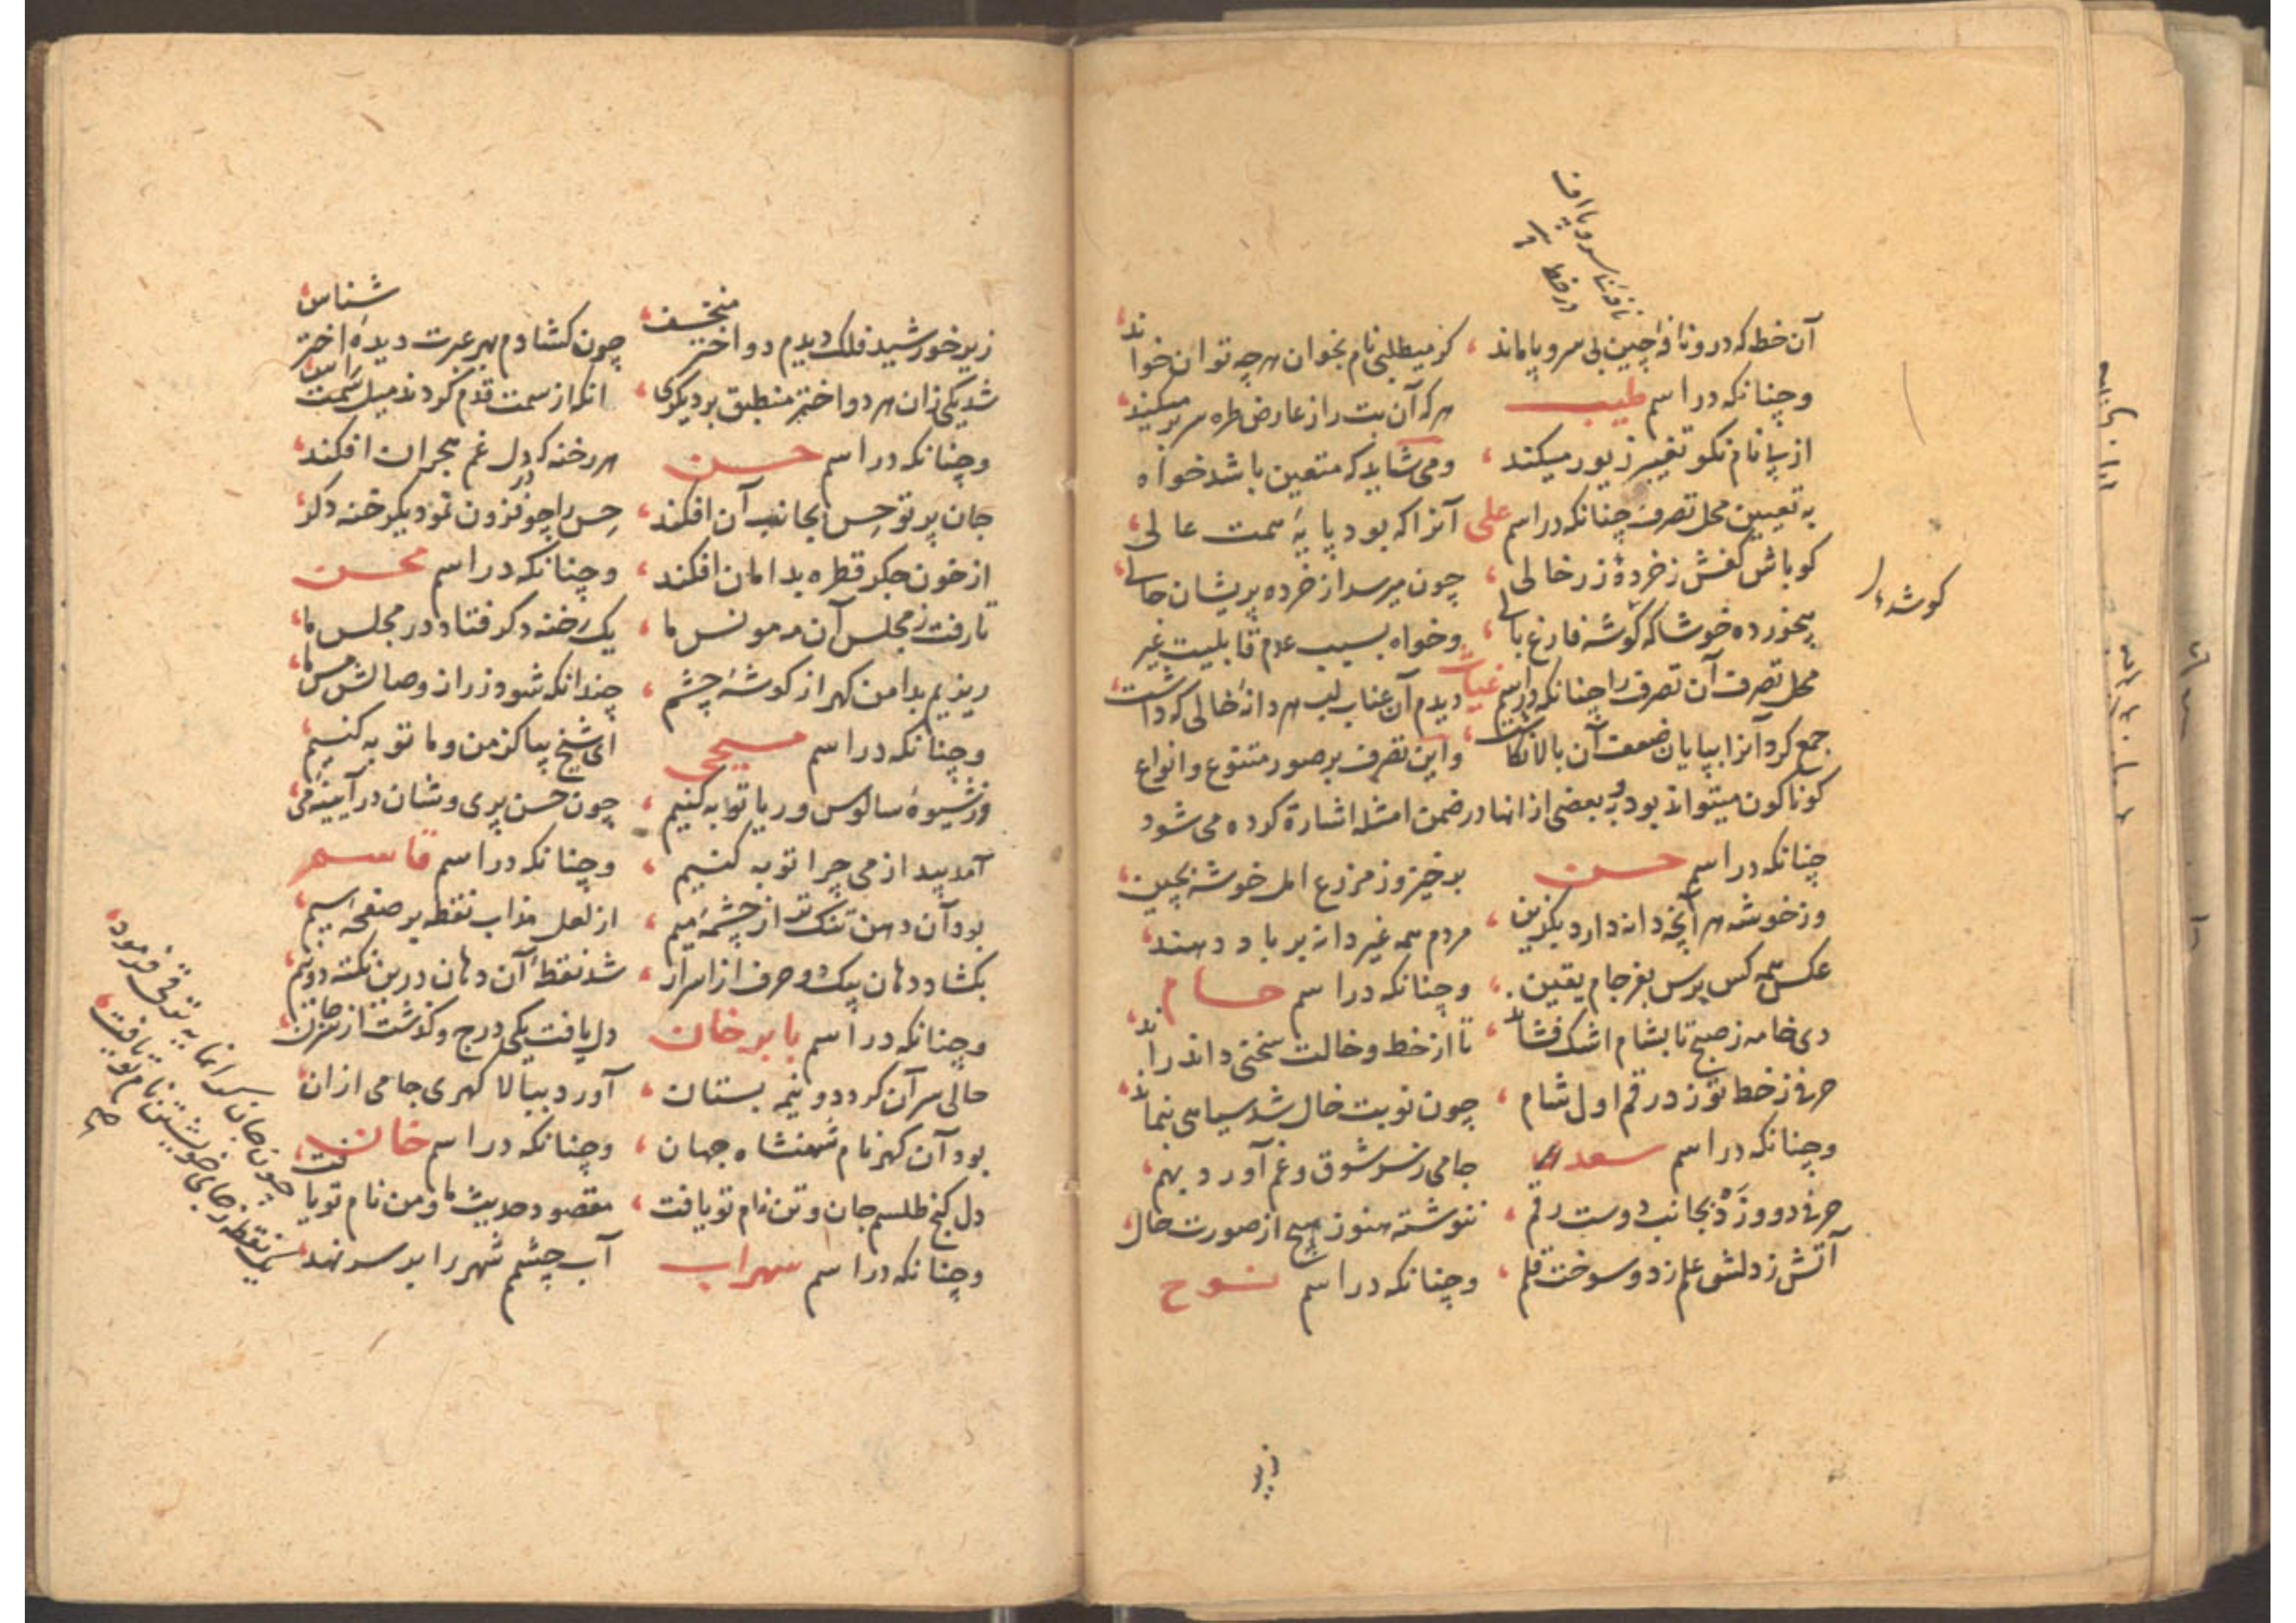 آن خط که در و نافهٔ چین بی سر و پا ماند ، کز میطلبی نام بخوان هر چه توان خواند
وچنانکه در اسم طیب هر که آن بت را ز عارض طره سر بر میکند
از پی نام نکو تغییر زیور میکند ، ومی شاید که متعین باشد خواه
به تعیین محل تصرف چنانکه در اسم علی آنرا که بود پایهٔ سمت عالی
کو باش کفش ز خردهٔ زر خالی ، چون میرسد از خرده پریشان حالی
خوشا که گوشه فارغ بالی ، وخواه بسبب عدم قابلیت غیر
محل تصرف آن تصرف را چنانکه در اسم غیاث دیدم آن عناب لب هر دانهٔ خالی که داشت
جمع کرد آنرا بپایان ضعف آن بالا نگاشت ، واین تصرف بر صور متنوع و انواع
کوناکون میتواند بود و به بعضی از انها در ضمن امثله اشارة کرده می شود
چنانکه در اسم حسن بر خیز وز مزرع امل خوشه بچین
وز خوشه هر آنچه دانه دارد بگزین ، مردم همه غیر دانه بر باد دهند
عکس همه کس برس بفرجام یقین ، وچنانکه در اسم حسام
دی خامه ز صبح تا بشام اشک فشاند ، تا از خط و خالت سخنی داند راند
حرفی ز خط تو زد رقم اول شام ، چون نوبت خال شد سیاهی بنماند
وچنانکه در اسم سعد جامی ز سر شوق و غم آورد بهم
حرفی دو و زد بجانب دوست رقم ، ننوشته هنوز هیچ از صورت حال
آتش ز دلش علم زد و سوخت قلم ، وچنانکه در اسم نوح
در خط
گوشهٔ
زیر
زیر خورشید فلک دیدم دو اختر منخسف ، چون کشادم بهر عبرت دیدهٔ اختر شناس
شد یکی زان هر دو اختر منطبق بر دیکری ، انکه از سمت قدم کردند میل سمت راس
وچنانکه در اسم حسن هر رخنه که در دل غم هجران افکند
جان پرتو حس بجانب آن افکند ، حس را چو فزون نمود یکرخنه دکر
از خون جکر قطره بدامان افکند ، وچنانکه در اسم محسن
تا رفت ز مجلس آن مه مونس ما ، یک رخنه دکر فتاد در مجلس ما
ریزیم بدامن کهر از کوشهٔ چشم ، چندانکه شود زر از وصالش مس ما
وچنانکه در اسم مسیحی ای شیخ بیا کز من و ما توبه کنیم
وز شیوهٔ سالوس و ریا توبه کنیم ، چون حسن پری وشان در آیینهٔ می
آمد پدید از می چرا توبه کنیم ، وچنانکه در اسم قاسم
بود آن دهن تنک تر از چشمهٔ میم ، از لعل مذاب نقطه بر صفحهٔ سیم
بکشاد دهان بیک دو حرف از اسرار ، شد نقطهٔ آن دهان درین نکته دو نیم
وچنانکه در اسم بابر خان دل یافت یکی درج و کذشت از سر جان
حالی سر آن کرد دو نیمه بستان ، آورد ببالا کهری جامی ازان
بود آن کهر نام شهنشاه جهان ، وچنانکه در اسم خان
دل کنج طلسم جان و تن نام تو یافت ، مقصود حدیث ما و من نام تو یافت
وچنانکه در اسم سهراب آب چشمم شهر را بر سر نهد
چون جان گرانمایه توقی فرمود
یک نقطه ز جای خویشتن نام تو یافت
صح